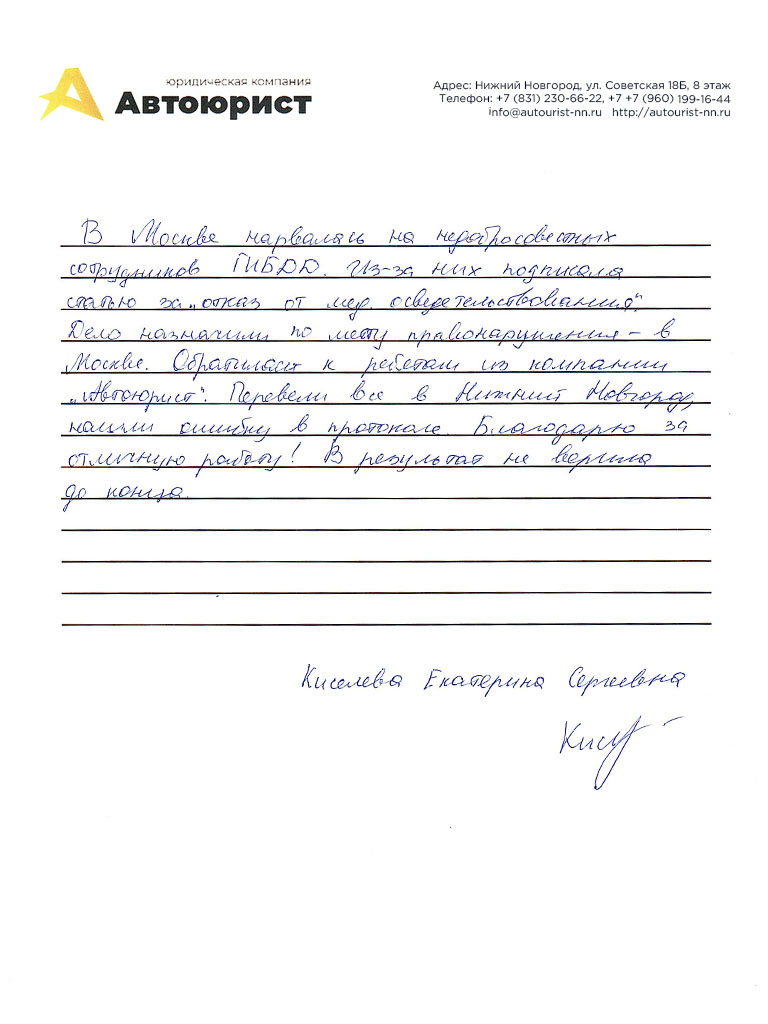 юридическая компания
Автоюрист
Адрес: Нижний Новгород, ул. Советская 18Б, 8 этаж
Телефон: +7 (831) 230-66-22, +7 +7 (960) 199-16-44
info@autourist-nn.ru http://autourist-nn.ru
В Москве нарвалась на недобросовестных
сотрудников ГИБДД. Из-за них подписала
статью за „отказ от мед. осведетельствования".
Дело назначили по месту правонарушения – в
Москве. Обратилась к ребятам из компании
„Автоюрист". Перевели все в Нижний Новгород,
нашли ошибку в протоколе Благодарю за
отличную работу! В результат не верила
до конца.
Киселева Екатерина Сергеевна